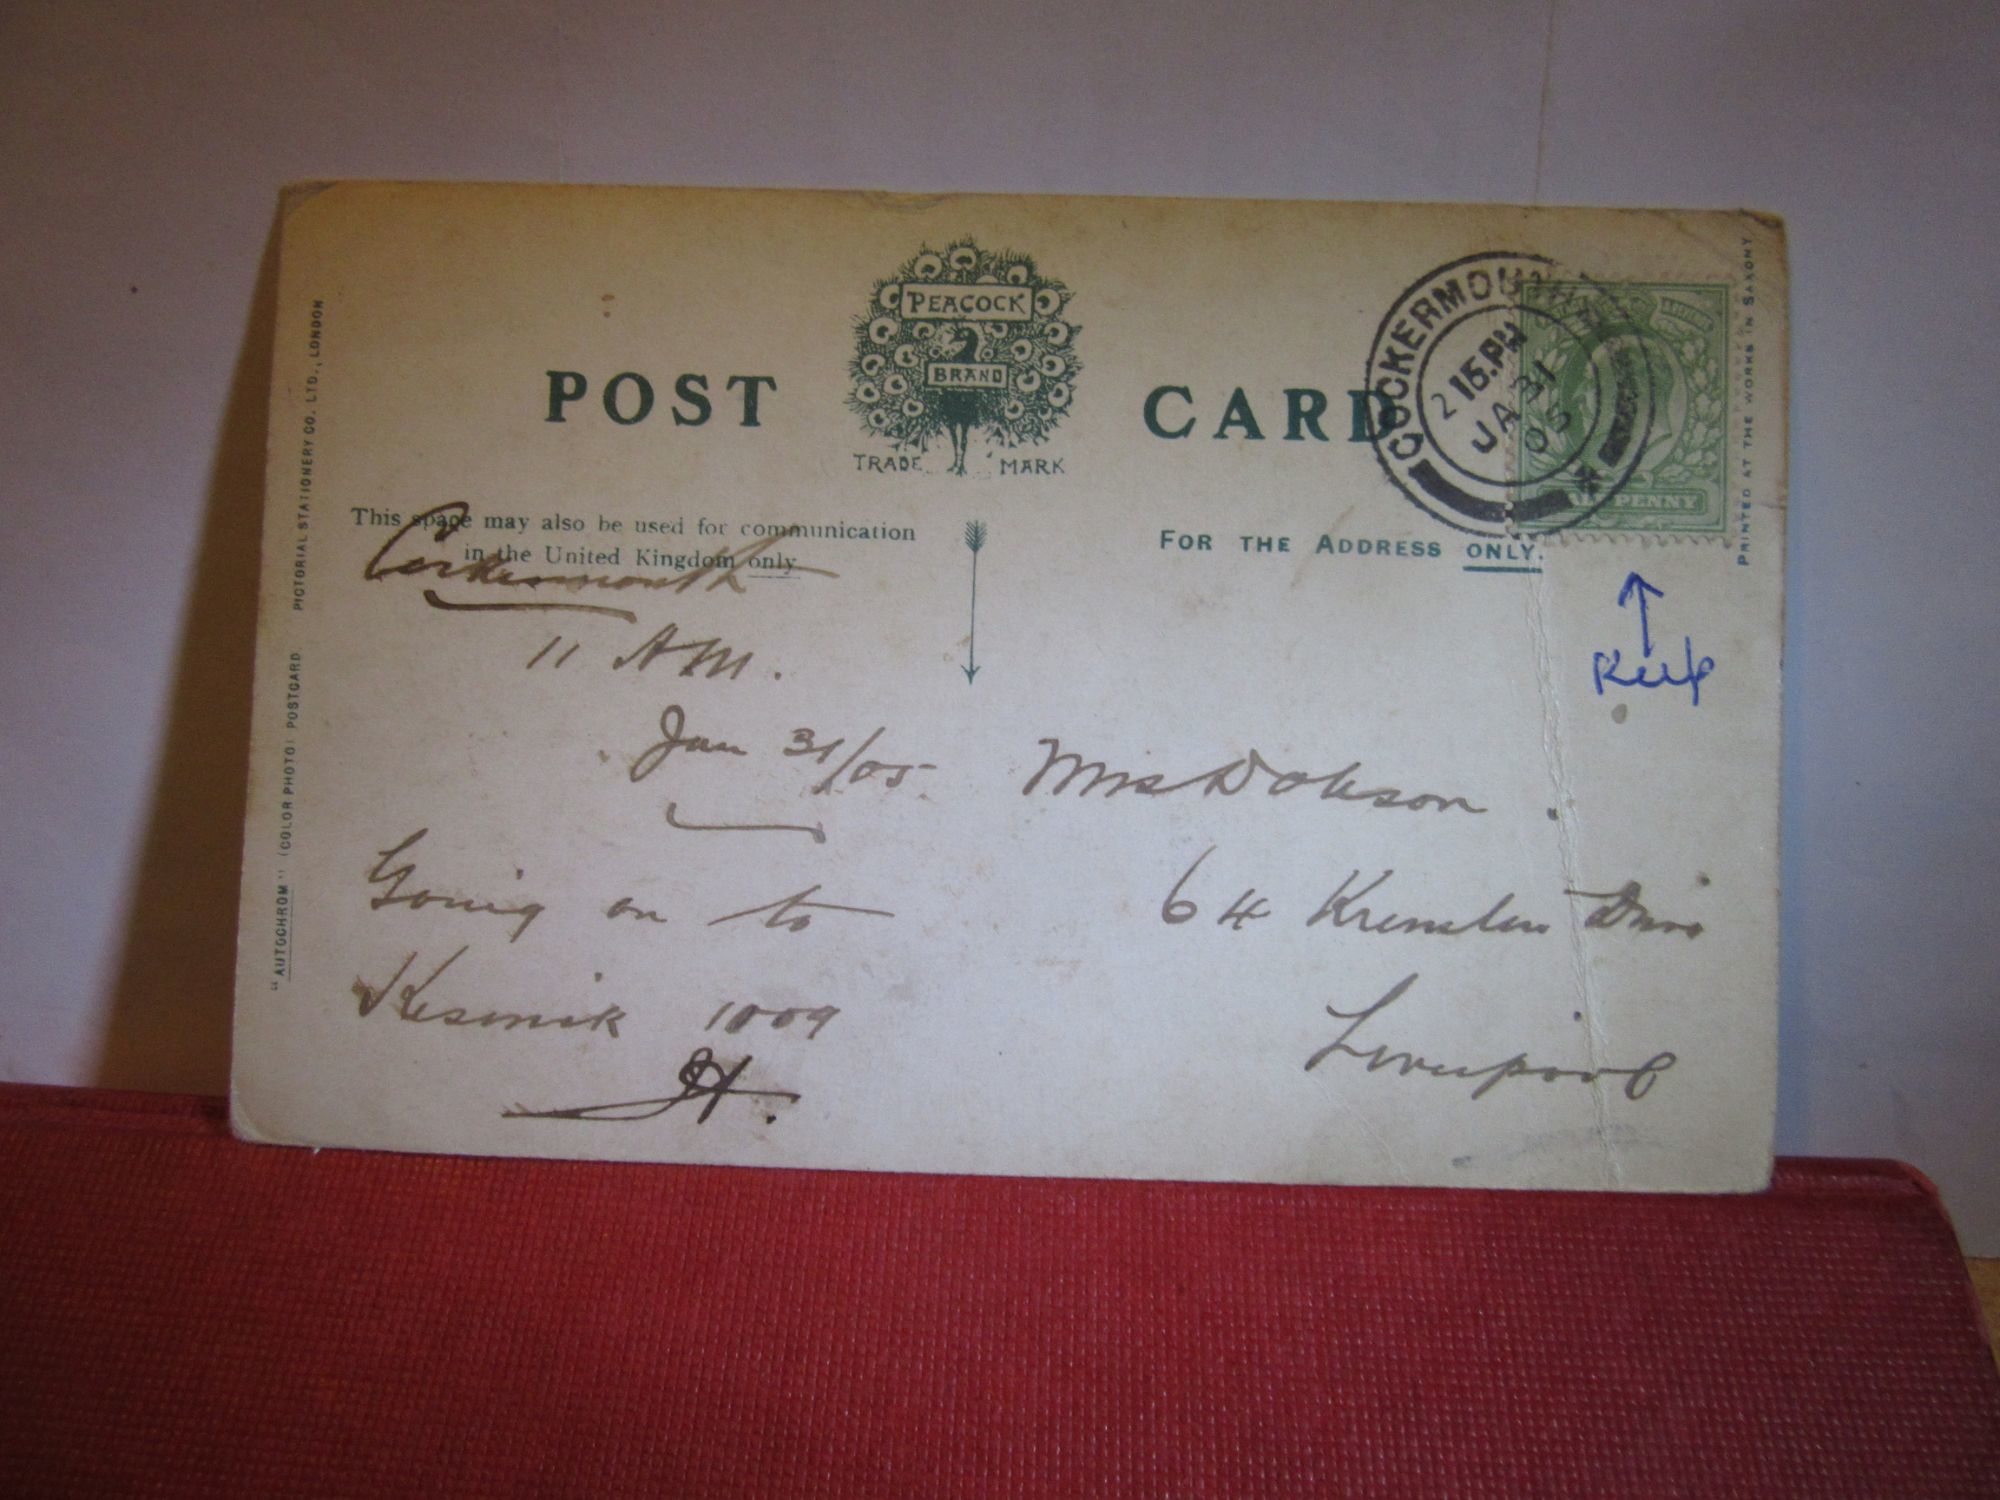 PEACOCK
BRAND
POST CARD
TRADE MARK
This space may also be used for communication
in the United Kingdom only
FOR THE ADDRESS ONLY.
COCKERMOUTH
2 15.PM
JA 31
05
PENNY
PRINTED AT THE WORKS IN SAXONY
"AUTOCHROM" (COLOR PHOTO) POSTCARD PICTORIAL STATIONERY CO. LTD., LONDON
Keep
Cockermouth
11 AM.
Jan 31/05
Going on to
Keswick
Dobson
64 Drive
Liverpool